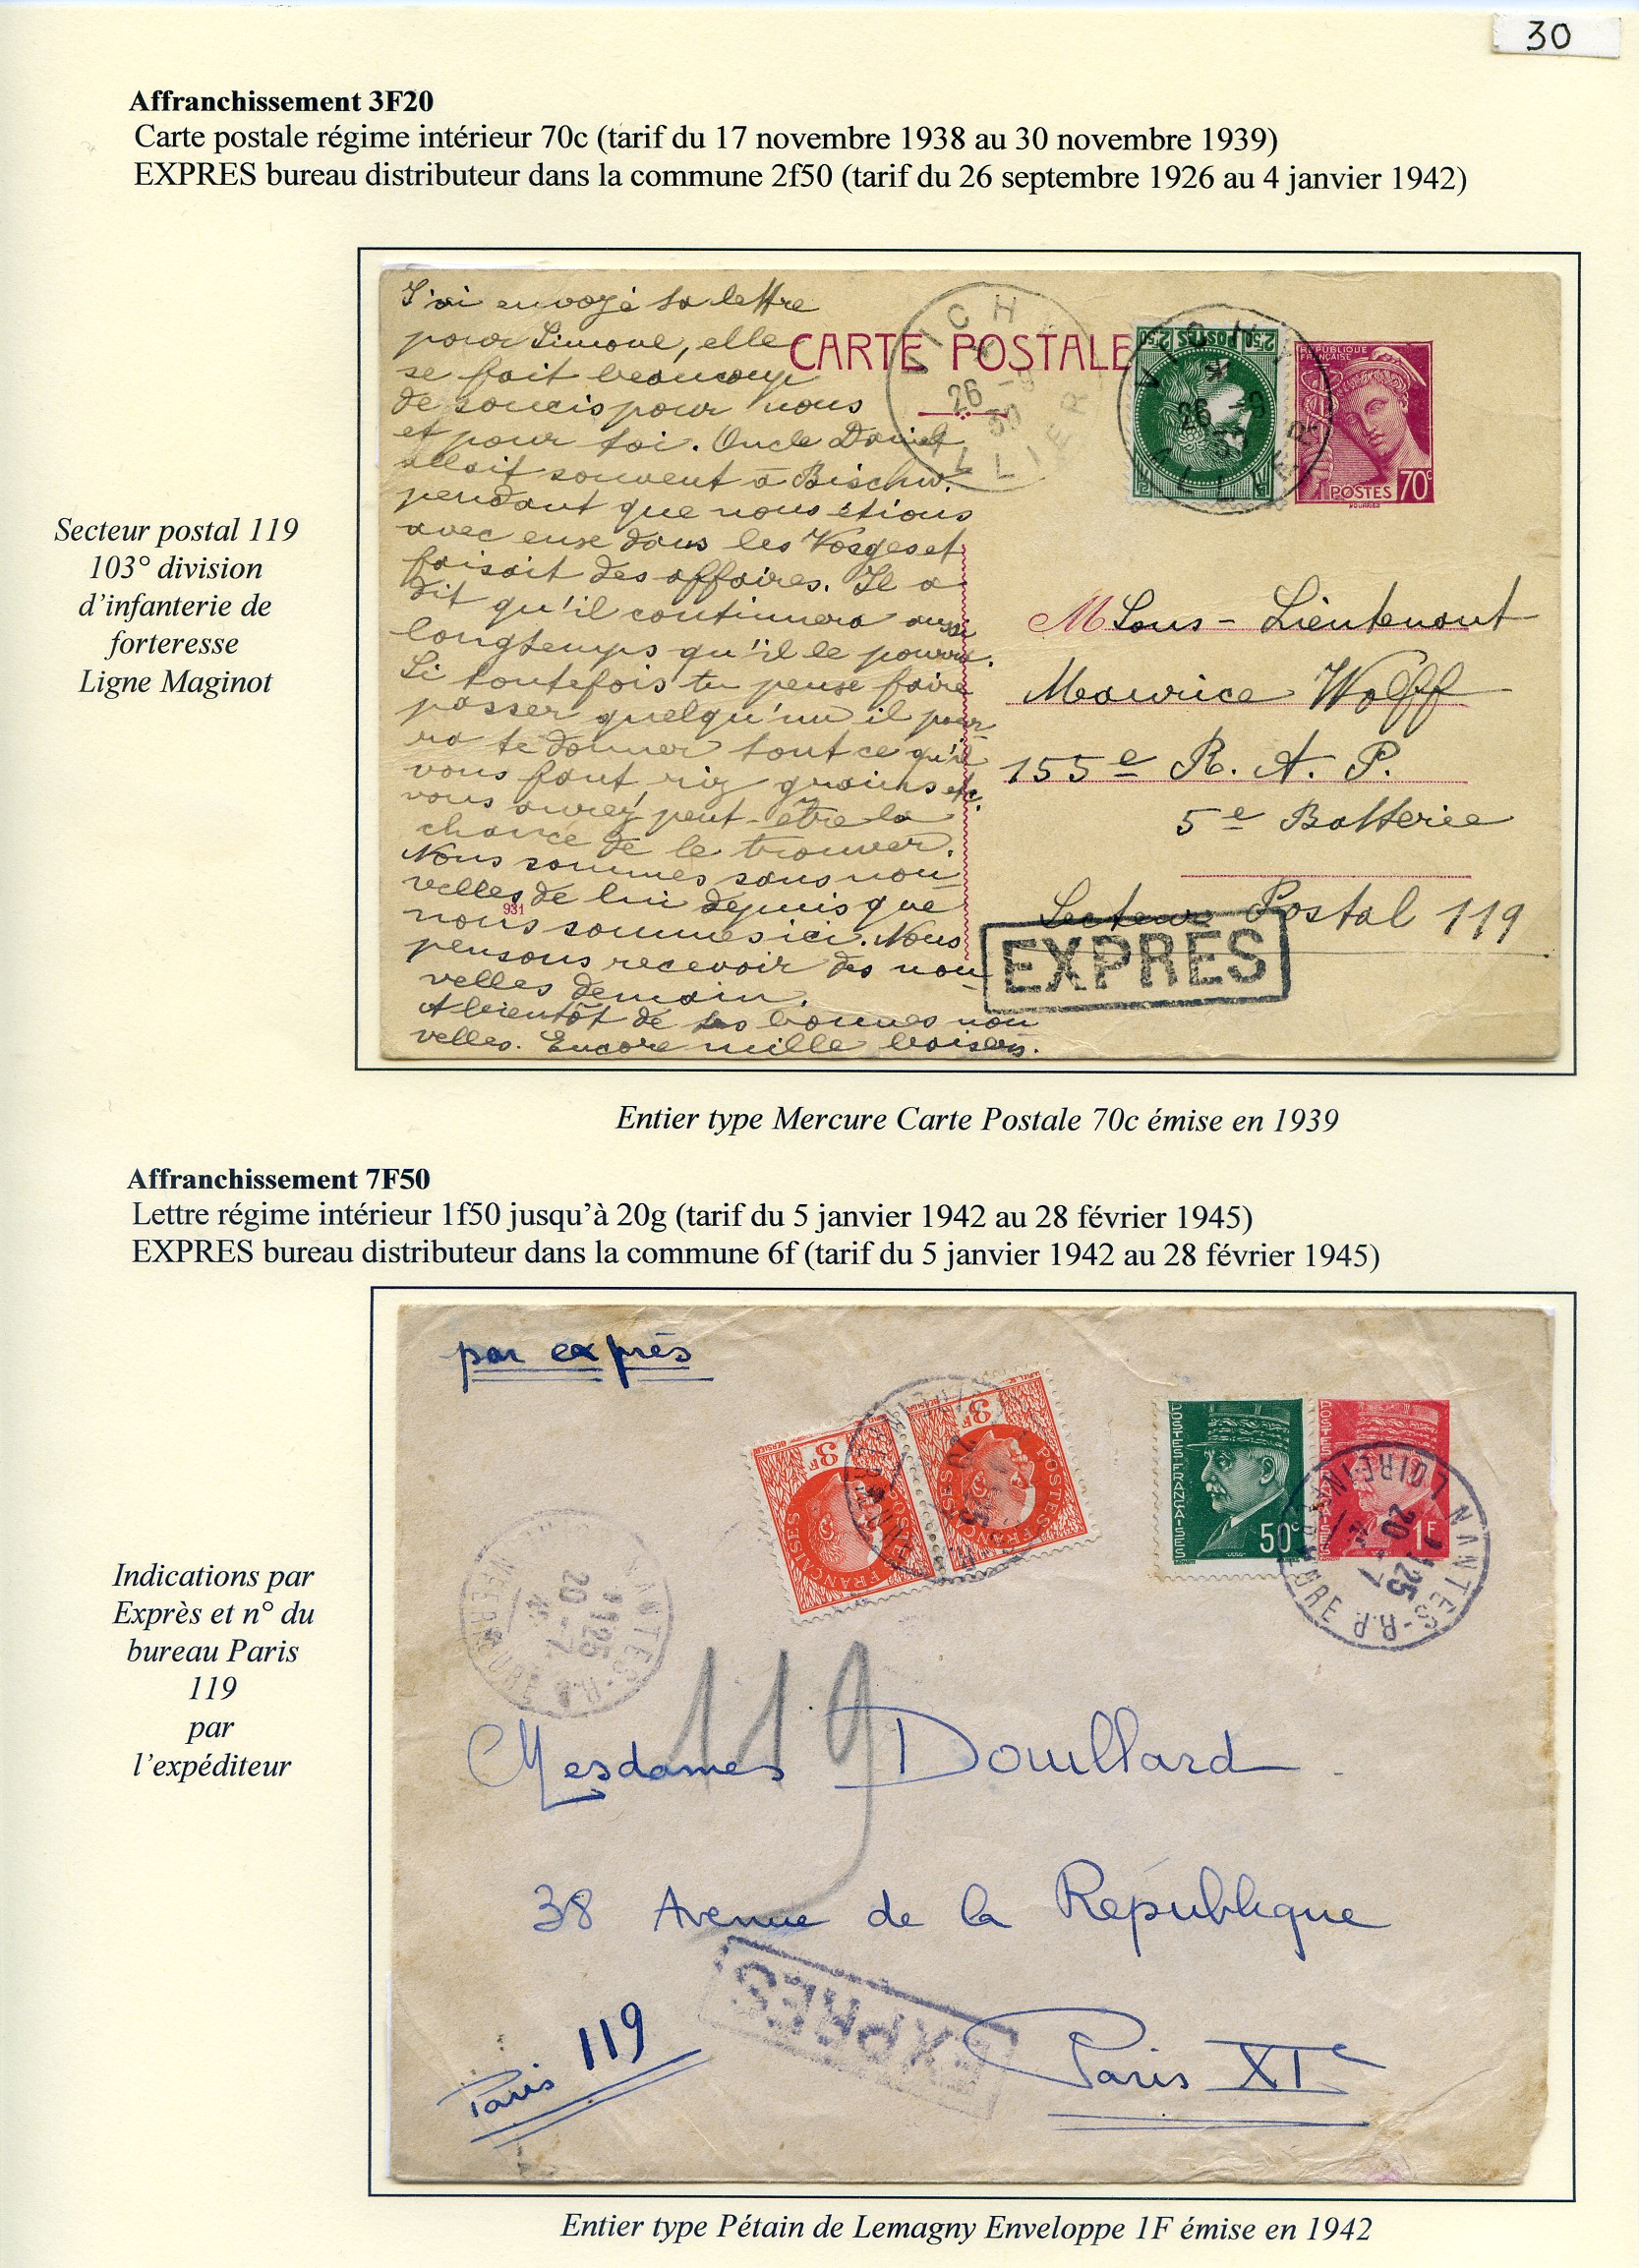 30
Affranchissement 3F20
Carte postale régime intérieur 70c (tarif du 17 novembre 1938 au 30 novembre 1939)
EXPRES bureau distributeur dans la commune 2f50 (tarif du 26 septembre 1926 au 4 janvier 1942)
Secteur postal 119
103° division
d'infanterie de
forteresse
Ligne Maginot
J'ai envoyé sa lettre
pour Simone, elle
se fait beaucoup
de soucis pour nous
et pour toi. Oncle Daniel
allait souvent à Bischw.
pendant que nous étions
avec eux dans les Vosges et
faisait des affaires. Il a
dit qu'il continuera aussi
longtemps qu'il le pourra.
Si toutefois tu peux faire
passer quelqu'un il pour-
ra te donner tout ce qu'il
vous faut, riz, grains etc.
vous aurez peut-être la
chance de le trouver.
Nous sommes sans nou-
velles de lui depuis que
nous sommes ici. Nous
pensons recevoir des nou-
velles demain.
A bientôt de tes bonnes nou-
velles. Encore mille baisers.
931
CARTE POSTALE
VICHY
26 -9
39
ALLIER
POSTES 2,50
VICHY
26 -9
39
ALLIER
REPUBLIQUE
FRANÇAISE
POSTES 70c
M Sous-Lieutenant
Maurice Wolff
155e R. A. P.
5e Batterie
Secteur Postal 119
EXPRÈS
Entier type Mercure Carte Postale 70c émise en 1939
Affranchissement 7F50
Lettre régime intérieur 1f50 jusqu'à 20g (tarif du 5 janvier 1942 au 28 février 1945)
EXPRES bureau distributeur dans la commune 6f (tarif du 5 janvier 1942 au 28 février 1945)
Indications par
Exprès et n° du
bureau Paris
119
par
l'expéditeur
par exprès
3F
POSTES FRANÇAISES
3F
POSTES FRANÇAISES
POSTES FRANÇAISES
50c
POSTES FRANÇAISES
1F
NANTES-R.P.
1125
20 -7
LOIRE INFRE
NANTES-R.P.
1125
20 -7
119
Mesdames Douillard
38 Avenue de la République
EXPRES
Paris XIe
Paris 119
Entier type Pétain de Lemagny Enveloppe 1F émise en 1942